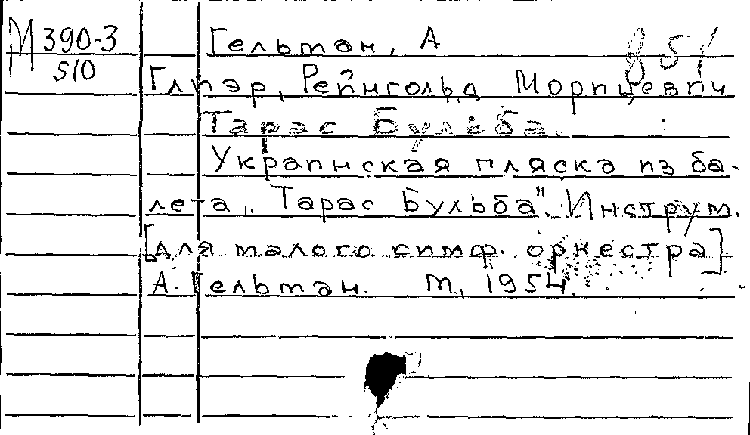 М 390-3
510
Гельман, А
851
Глиэр, Рейнгольд Морицевич
Тарас Бульба.
Украинская пляска из ба-
лета „Тарас Бульба". Инструм.
[для малого симф. оркестра]
А. Гельман. М, 1954.